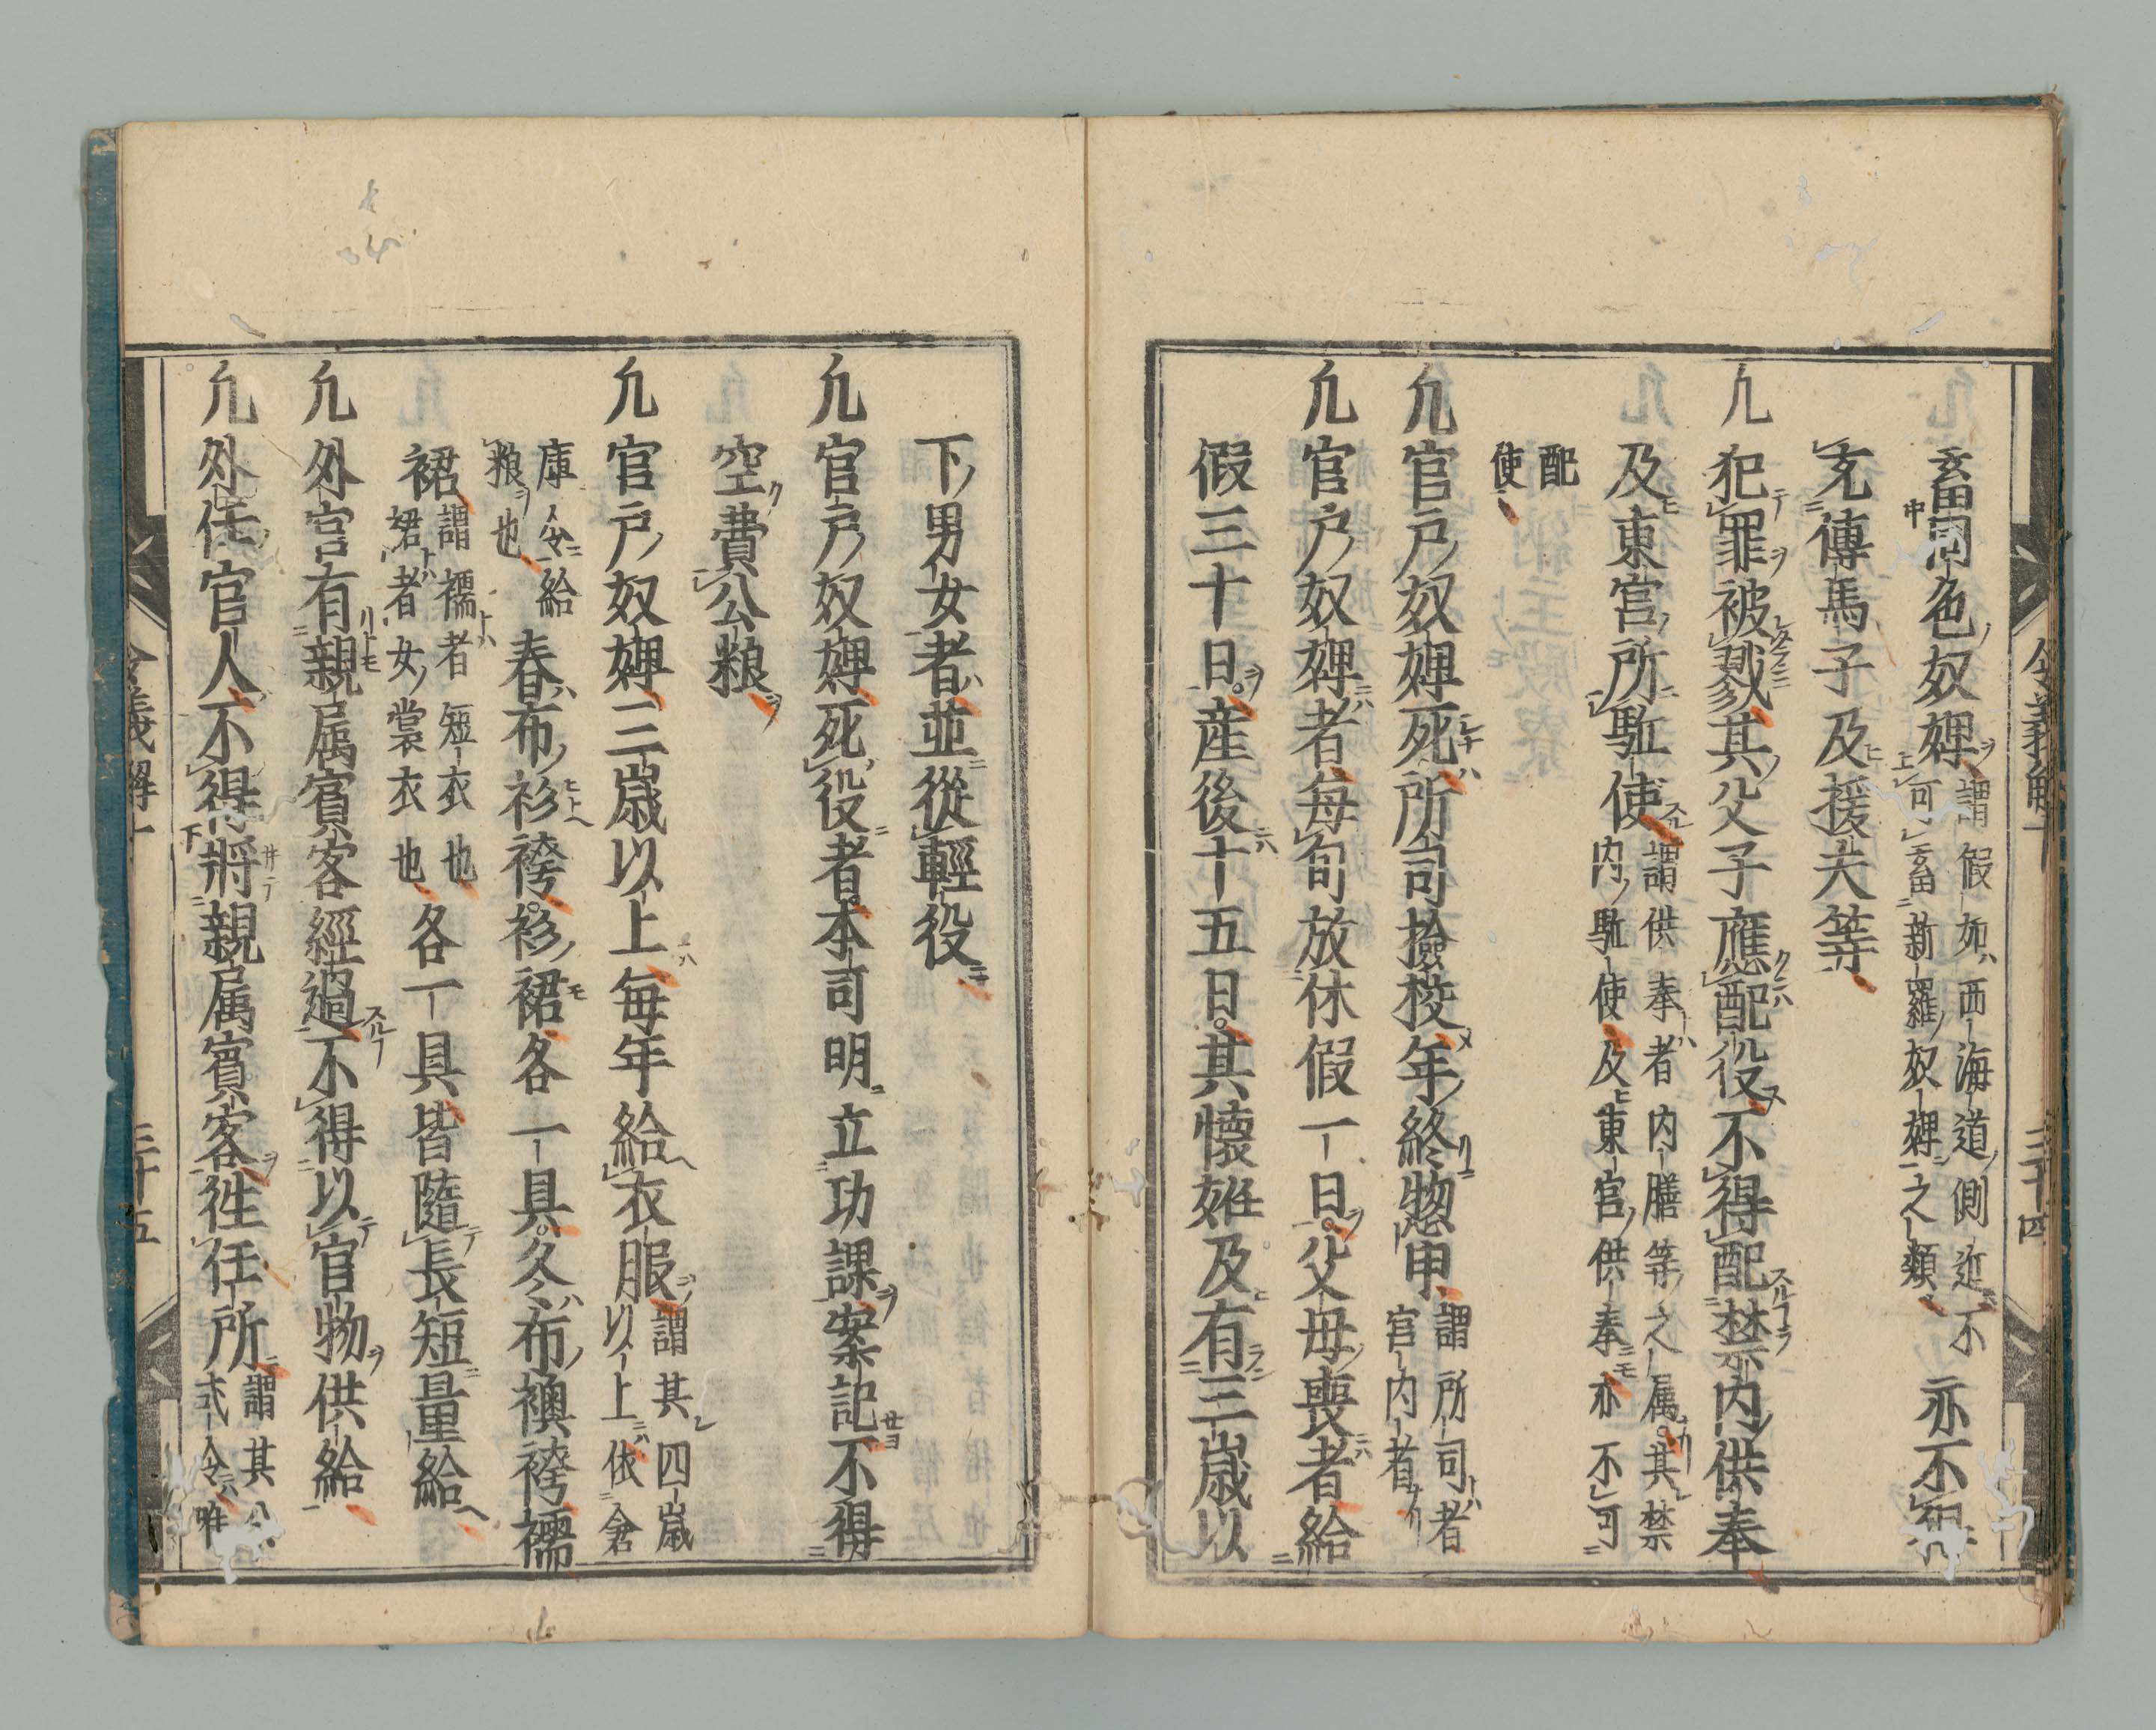 畜同色奴婢謂假如西海道側近不可畜新羅奴婢之類亦不
充傳馬子及援夫等
凡犯罪被戮其父子應配役不得配禁内供奉
及東宮所駈使謂供奉者内膳等之属其禁内駈使及東宮供奉亦不可
配使
凡官戸奴婢死所司撿挍年終惣申謂所司者官内者
凡官戸奴婢者毎旬放休假一日父母喪者給
假三十日産後十五日其懐妊及有三歳以
令義解十
三十四
下男女者並從輕役
凡官戸奴婢死役者本司明立功課案記不得
空費公粮
凡官戸奴婢三歳以上毎年給衣服謂其四歳以上依倉
庫令給粮也春布衫袴衫裙各一具冬布襖袴襦
裙謂襦者短衣也裙者女裳衣也各一具皆隨長短量給
凡外官有親属賓客經過不得以官物供給
凡外任官人不得將親属賓客徃任所謂其式令唯
令義解十
三十五